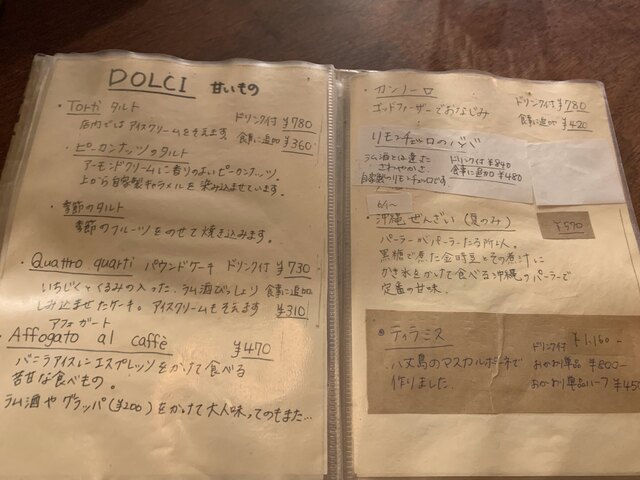 DOLCI 甘いもの
・Torti タルト
ドリンク付 ¥780
店内ではアイスクリームをそえます 食事に追加 ¥360
・ピーカンナッツのタルト
アーモンドクリームに香りのよいピーカンナッツ。
上から自家製キャラメルを染み込ませています。
・季節のタルト
季節のフルーツをのせて焼き込みます。
・Quattro quarti パウンドケーキ ドリンク付 ¥730
いちじくとくるみの入った、ラム酒びっしより 食事に追加
しみ込ませたケーキ。アイスクリームもそえます ¥310
アフォガート
・Affogato al caffè ¥470
バニラアイスにエスプレッソをかけて食べる
苦甘な食べもの。
ラム酒やグラッパ(¥200)をかけて大人味ってのもまた…
・カンノーロ
ドリンク付 ¥780
ゴッドファーザーでおなじみ
食事に追加 ¥420
リモンチェッロのババ
ラム酒とは違った ドリンク付 ¥840
さわやかさ 食事に追加 ¥480
自家製のリモンチェッロです
6/1〜
・沖縄ぜんざい(夏のみ) ¥570
パーラーがパーラーたる所以。
黒糖で煮た金時豆とその煮汁に
かき氷をかけて食べる沖縄のパーラーで
定番の甘味。
・ティラミス
ドリンク付 ¥1,160-
八丈島のマスカルポーネで おかわり単品 ¥800-
作りました。 おかわり単品ハーフ ¥450